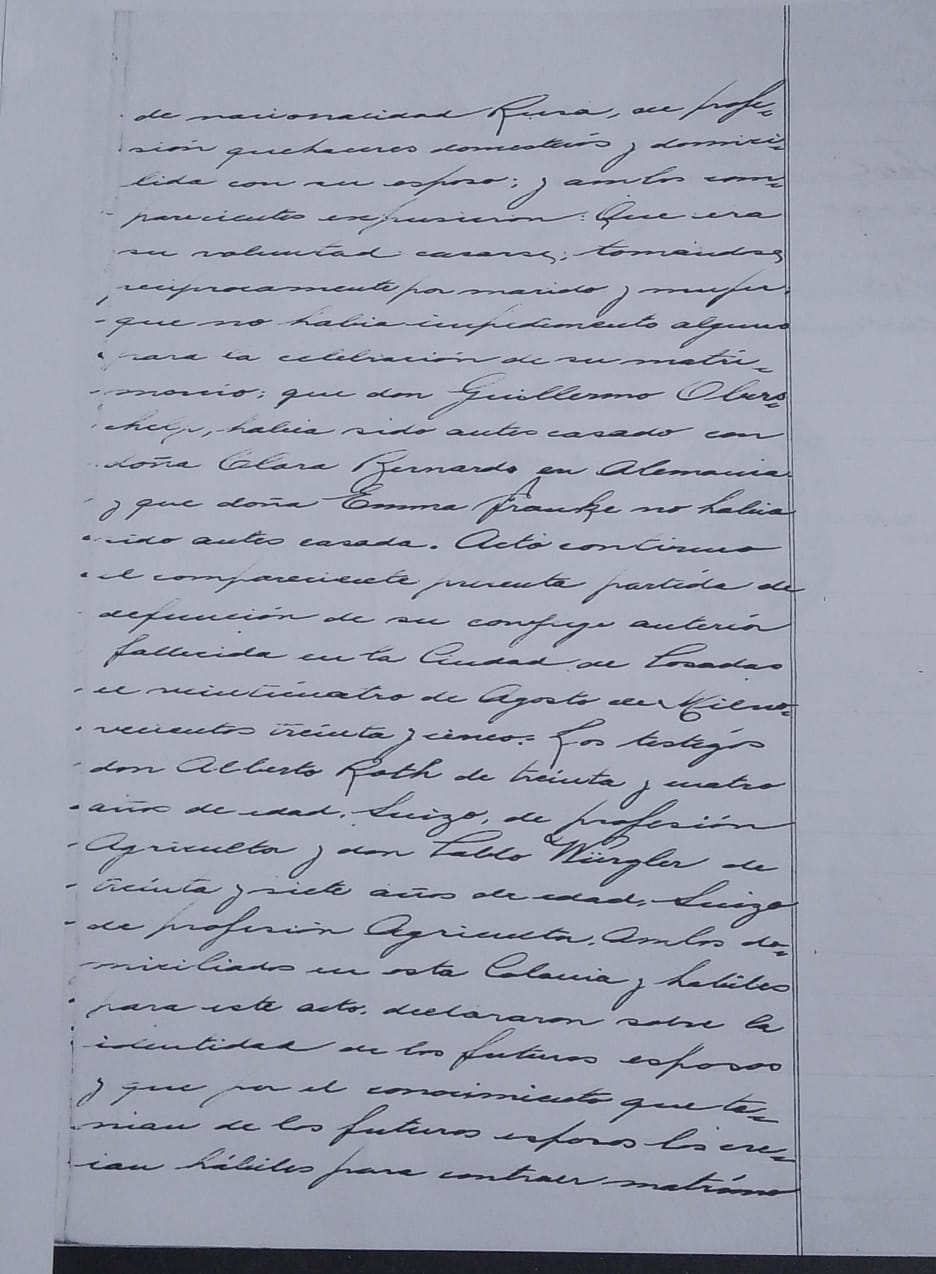 de nacionalidad Rusa, de profe-
sión quehaceres domesticos y domici-
lida con su esposo; y ambos com-
parecientes expusieron: Que era
su voluntad casarse, tomandse
reciprocamente por marido y mujer.
que no habia impedimento alguno
para la celebración de su matri-
monio; que don Guillermo Obers-
help, habia sido antes casado con
doña Clara Bernardo en Alemania
y que doña Emma Franke no habia
sido antes casada. Acto continuo
el compareciente presenta partida de
defunción de su conjuge anterior
fallecida en la Ciudad de Posadas
el veinticuatro de Agosto de Mil no-
vecientos treinta y cinco. Los testigos
don Alberto Roth de treinta y cuatro
años de edad, Suizo, de profesión
Agricultor y don Pablo Würgler de
treinta y siete años de edad, Suizo
de profesión Agricultor. Ambos do-
miciliados en esta Colonia y habiles
para este acto, declararon sobre la
identidad de los futuros esposos
y que por el conocimiento que te-
nian de los futuros esposos los cre-
ian hábiles para contraer matrimo